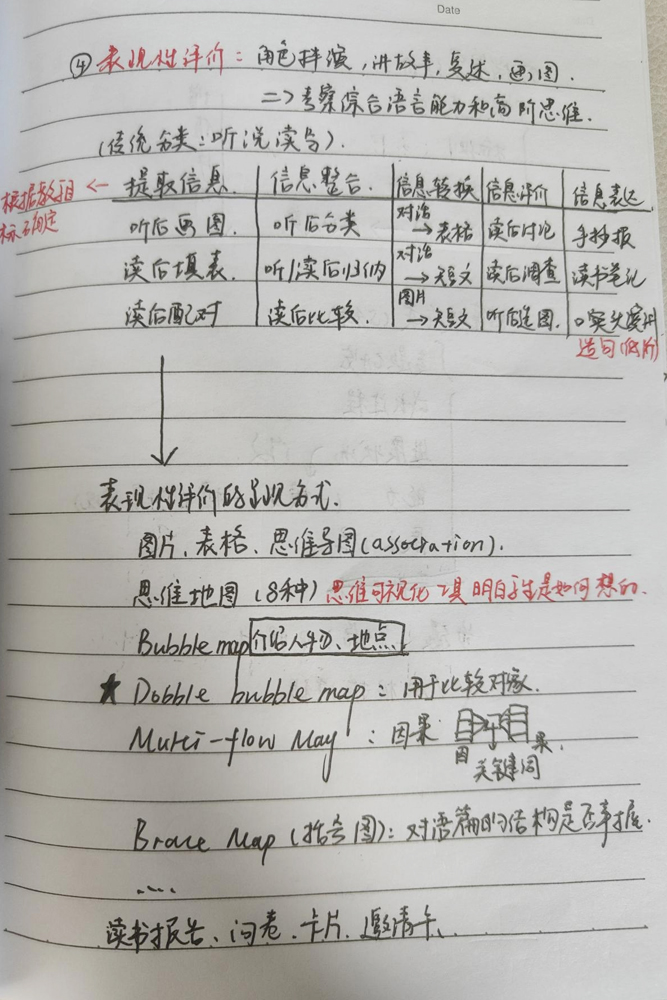 Date
④ 表现性评价：角色拌演，讲故事，复述，画图.
=> 考察综合语言能力和高阶思维.
(传统分类：听说读写).
根据教学目标确定 ← 提取信息. 信息整合. 信息转换 信息评价 信息表达
听后画图. 听后分类 对话→表格 读后讨论 手抄报
读后填表. 听/读后归纳 对话→短文 读后调查 读书笔记
读后配对 读后比较. 图片→短文 听后选图.
造句(低阶)
表现性评价的呈现方式.
图片、表格、思维导图(assocration).
思维地图 (8种) 思维可视化工具 明白学生是如何想的.
Bubble map 介绍人物、地点
★ Dobble bubble map：用于比较对象.
Murti-flow May：因果 因 果.
关键词
Brace Map (括号图)：对语篇的结构是否掌握.
....
读书报告、问卷、卡片、邀请卡、